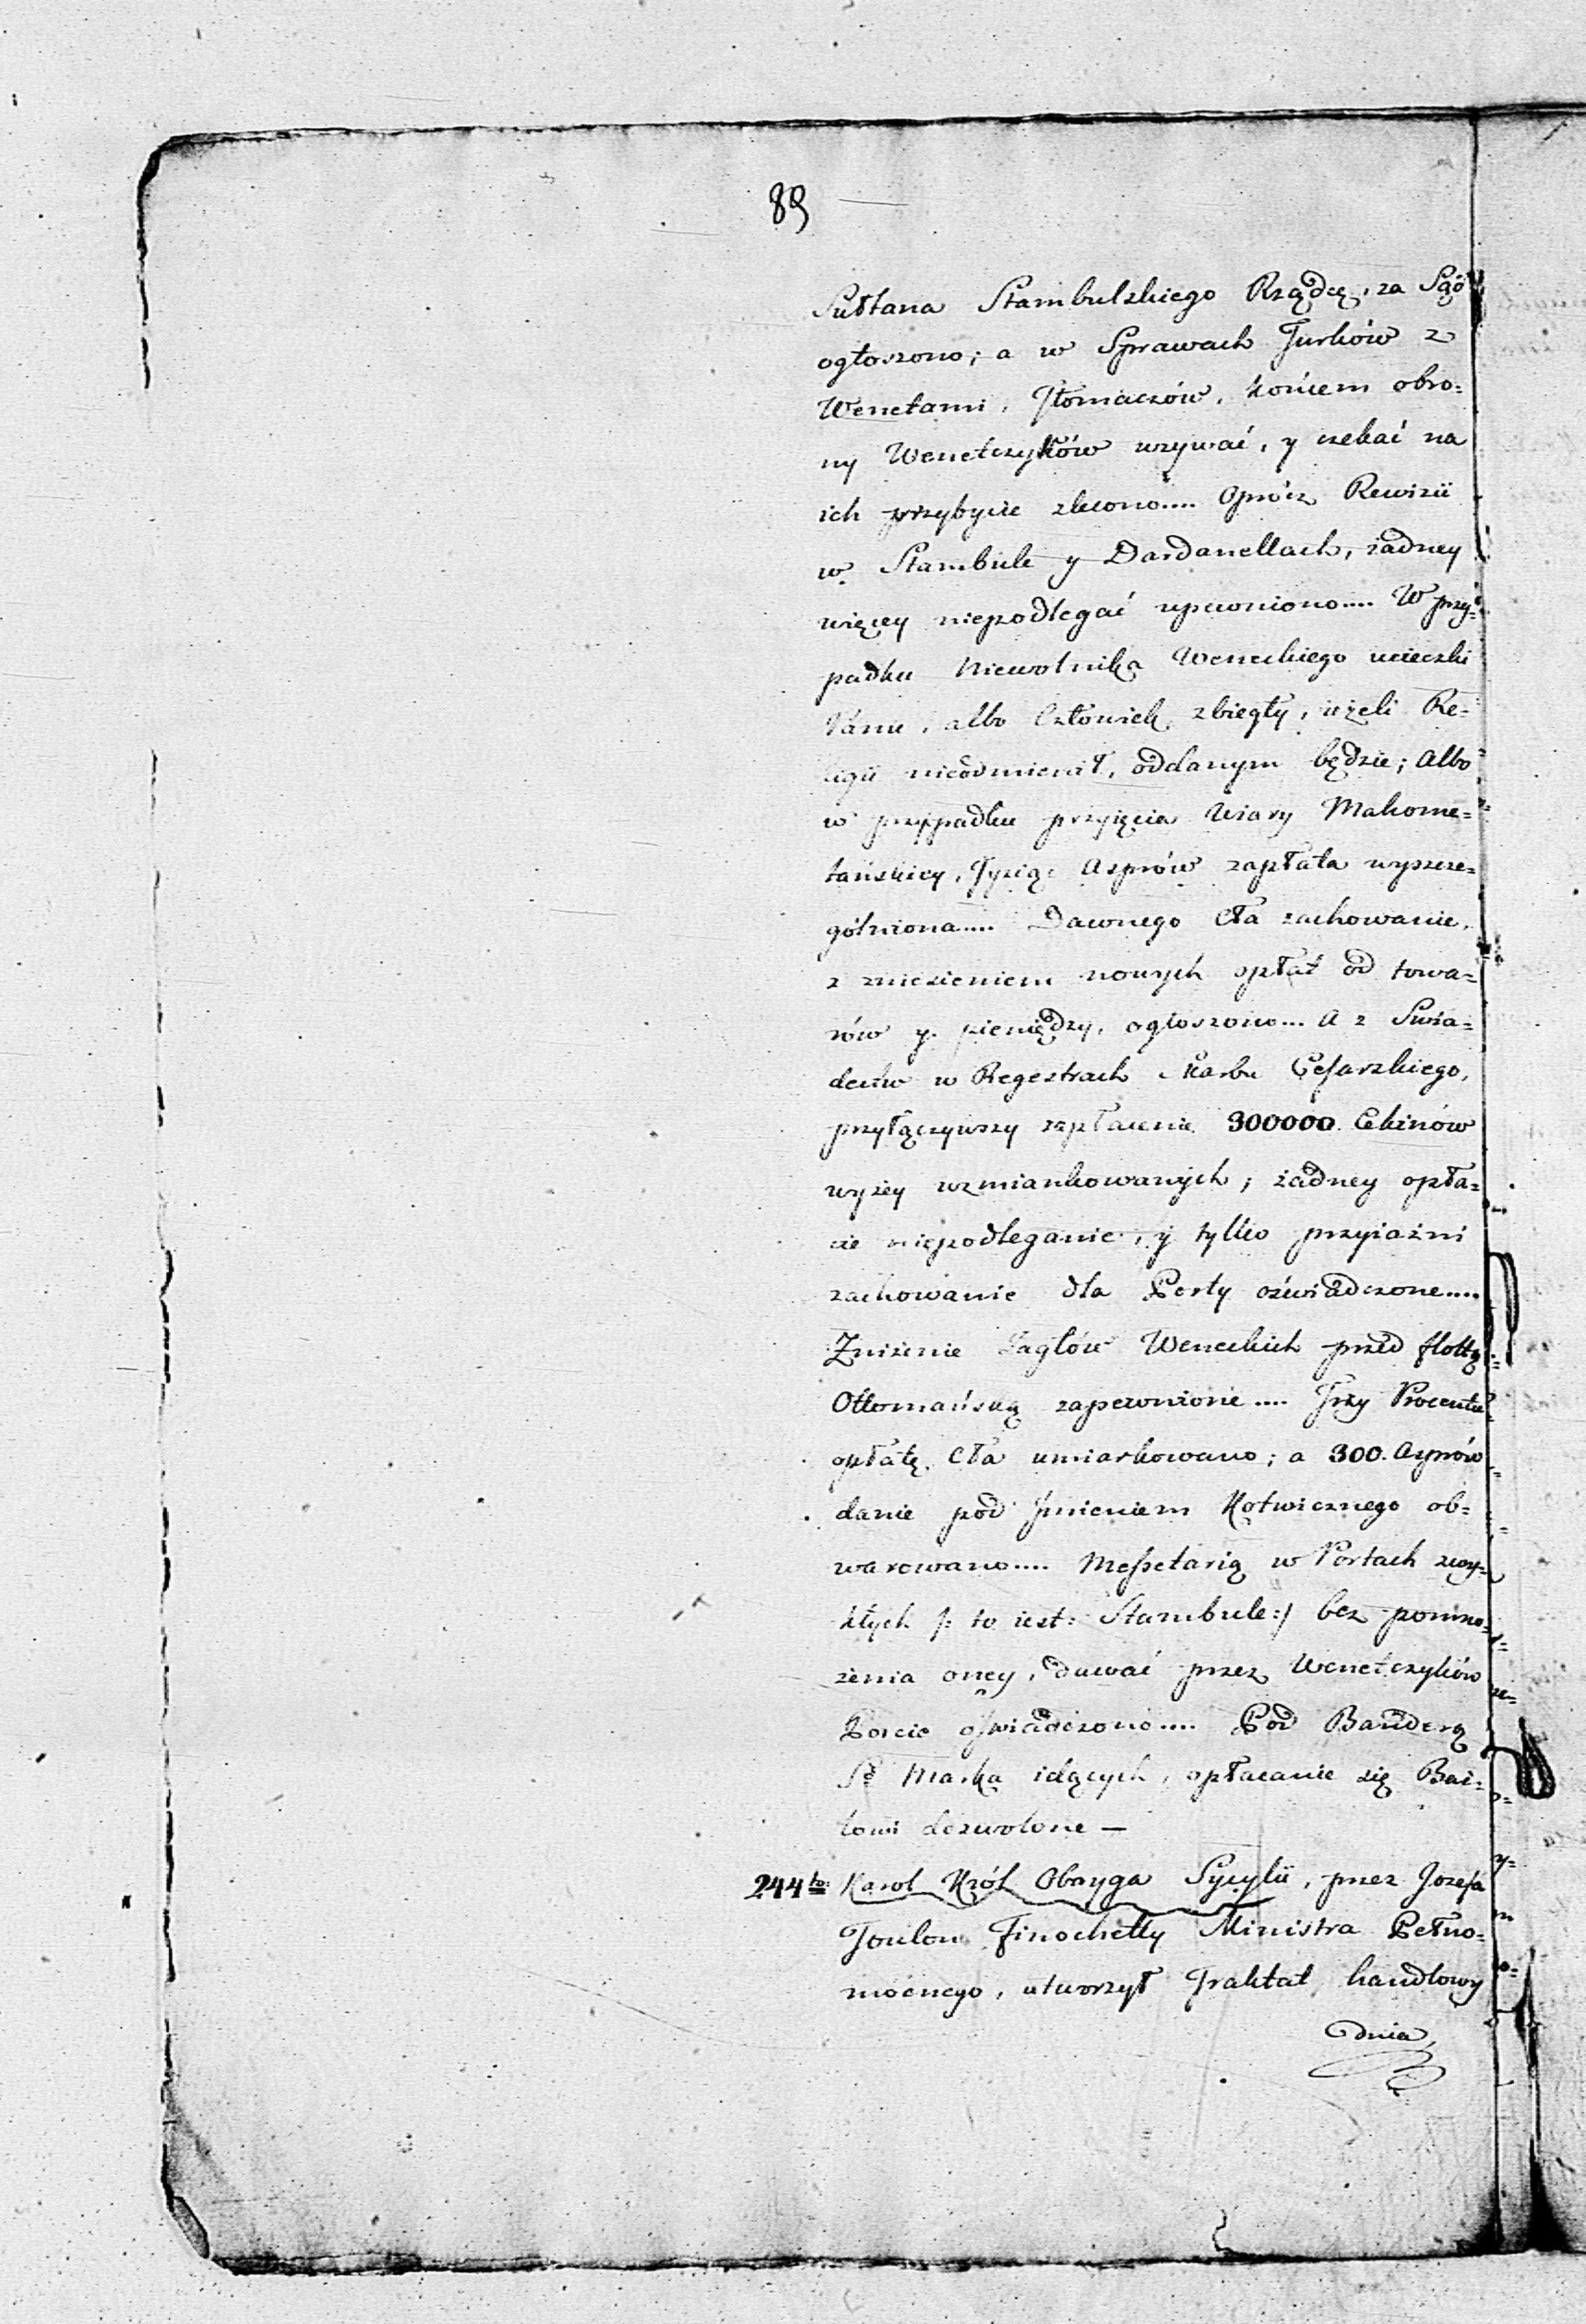 89
Sułtana Stambulskiego Rządcę, za Sgó
ogłoszono; a w Sprawach Turków z
Wenetami, Tłomaczów, końcem obro=
ny Wenetczyków wzywać, y czekać na
ich przybycie zlecono.... Oprócz Rewizii
w Stambule y Dardanellach, żadney
więcey niepodlegać upewniono.... W przy=
padku Niewolnika Weneckiego ucieczki
Panu, albo Człowiek zbiegły, ieżeli Re=
ligii nieodmienił, oddanym będzie; Albo
w przypadku przyięcia Wiary Mahome=
tańskiey, Tysiąc Asprów zapłata wyszcze=
gólniona.... Dawnego Cła zachowanie,
z zniesieniem nowych opłat od towa=
rów y pieniędzy, ogłoszono... A z Swia=
dectw w Regestrach Skarbu Cesarskiego,
przyłączywszy zapłacenie 300000. Cekinów
wyżey wzmiankowanych; żadney opła=
cie niepodleganie, y tylko przyiaźni
zachowanie dla Porty oświadczone....
Zniżenie Żaglów Weneckich przed flottą
Ottomańską zapewnione.... Trzy Procentu
opłatę Cła umiarkowano; a 300. Asprów
danie pod Jmieniem Kotwicznego ob=
warowano.... Messetarią w Portach zwy=
kłych /: to iest: Stambule:/ bez pomno=
żenia oney, dawać przez Wenetczyków
Porcie oświadczono.... Pod Banderą
Sº Marka idących, opłacanie się Bai=
lowi dozwolone —
244to Karol Król Oboyga Sycylii, przez Jozefa
Joulou Finochetty Ministra Pełno=
mocnego, utworzył Traktat handlowy
dnia